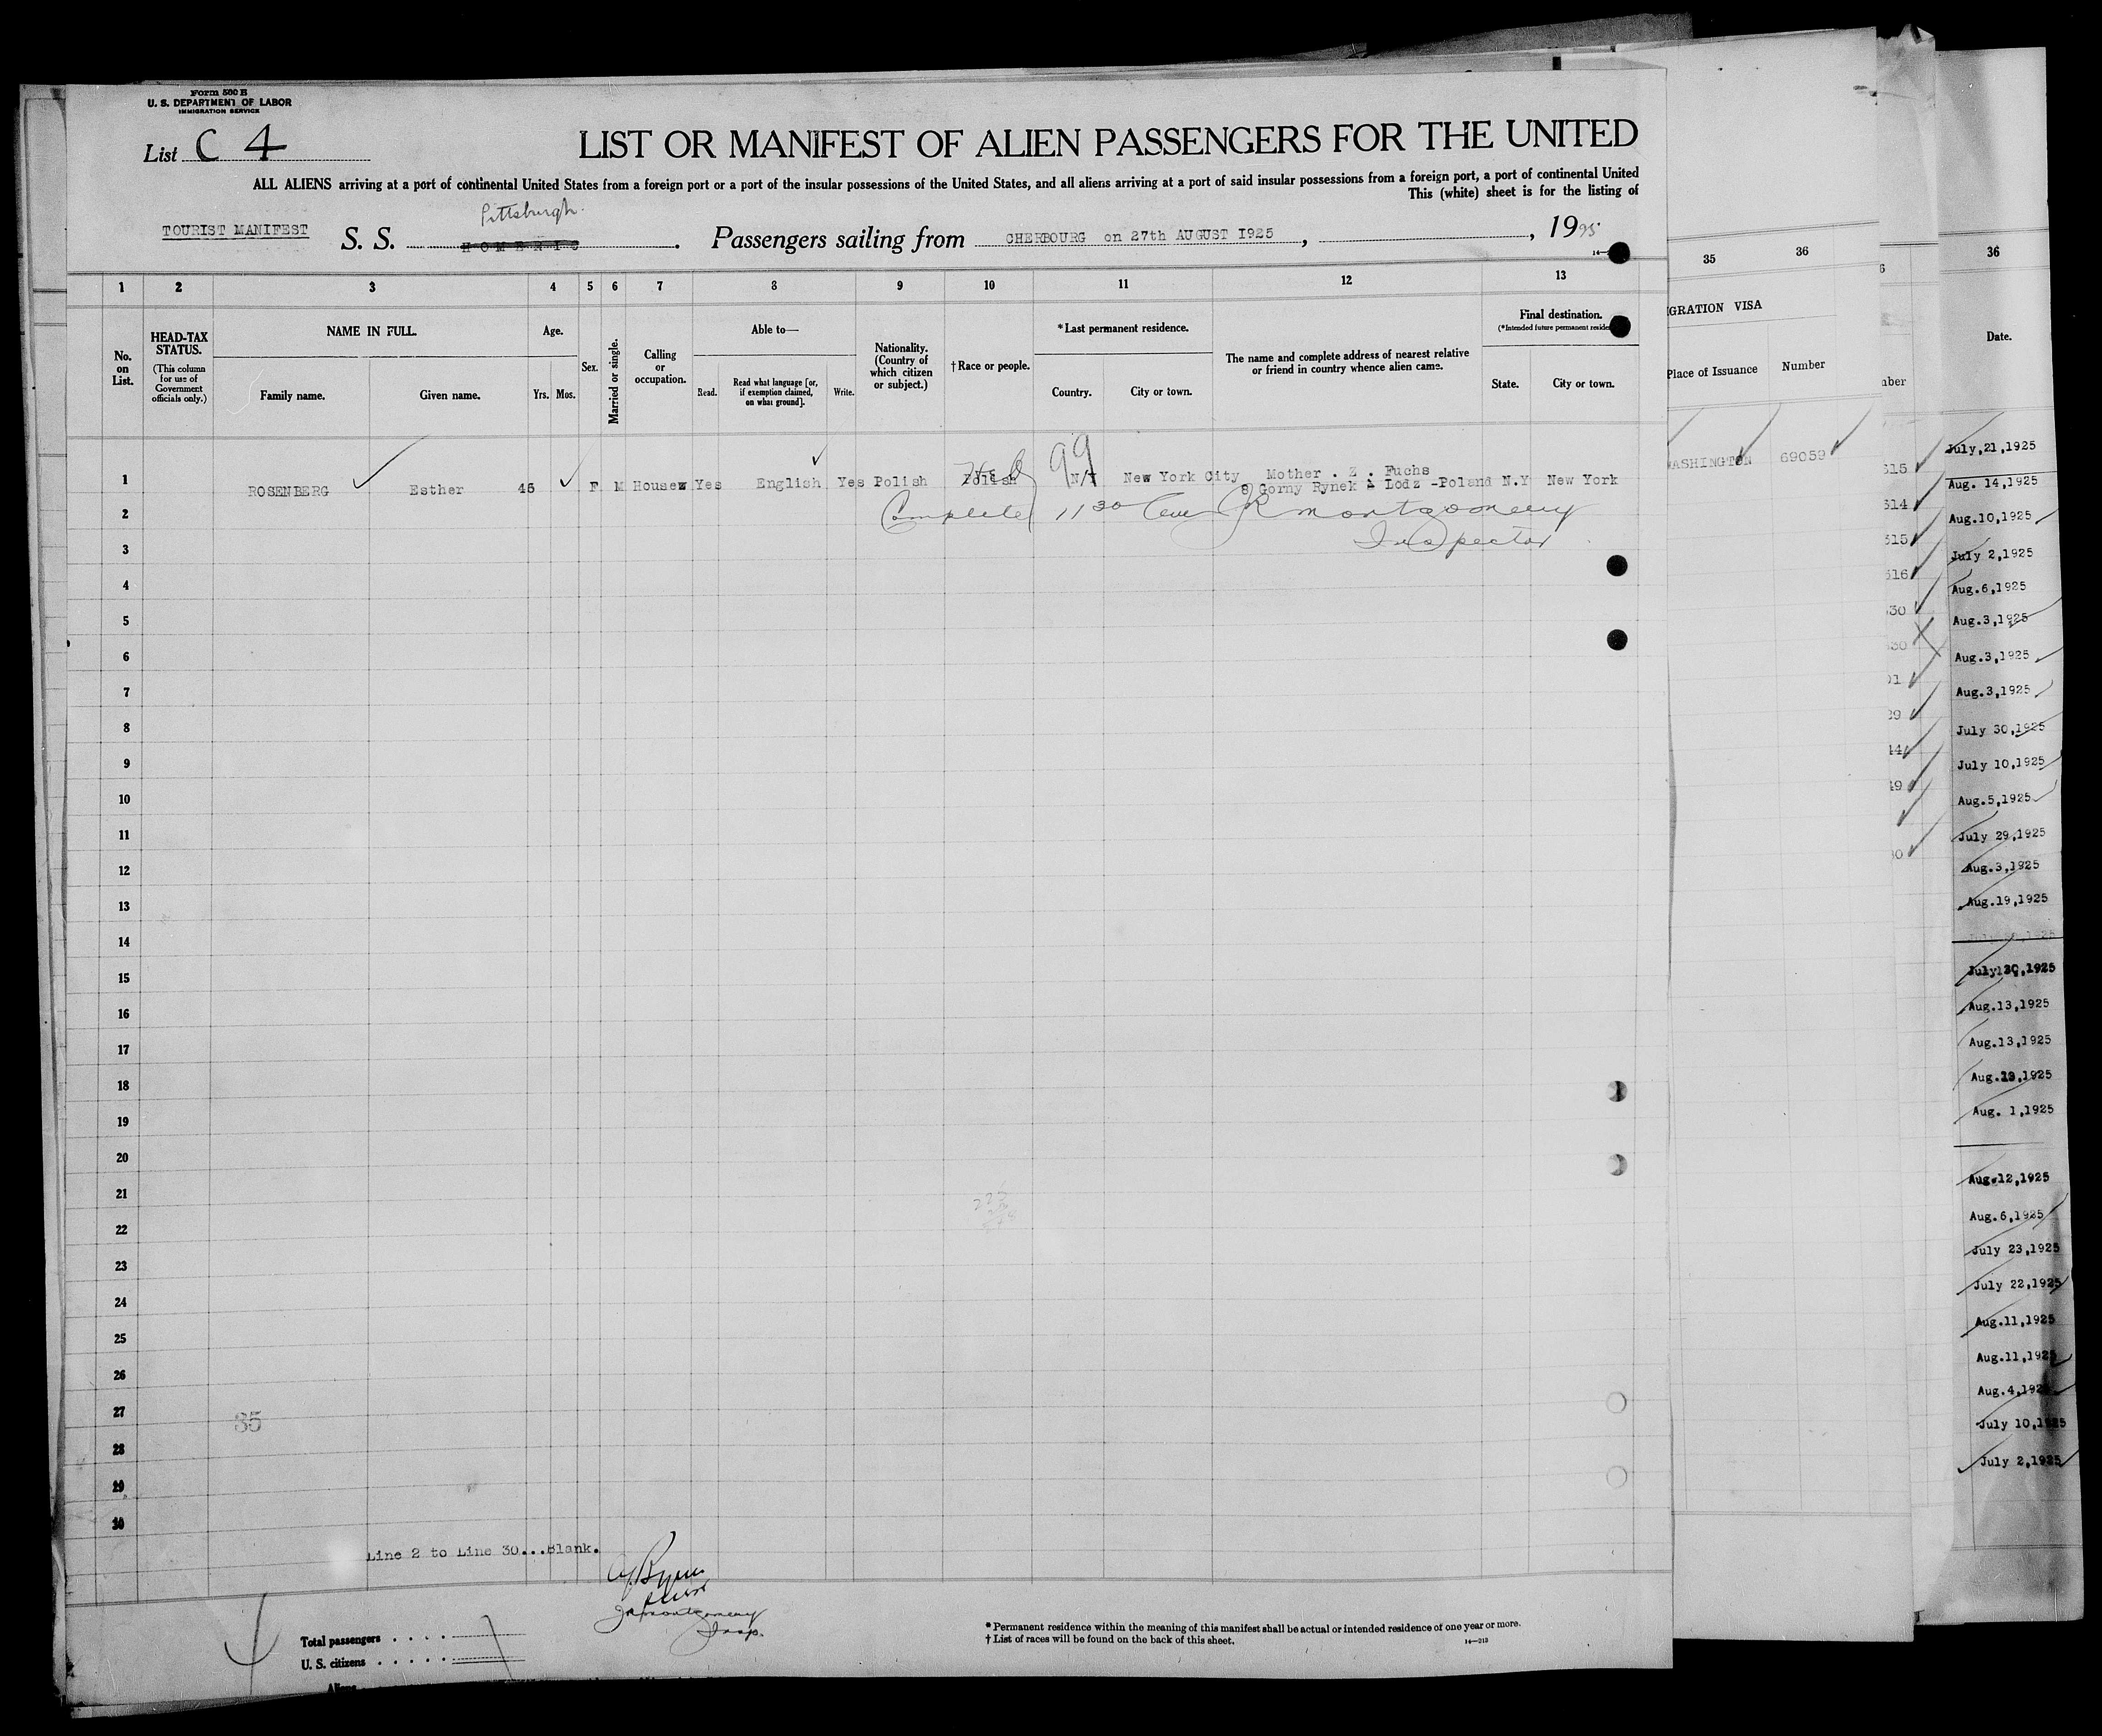 Form 500 B
U. S. DEPARTMENT OF LABOR
IMMIGRATION SERVICE
List C 4
LIST OR MANIFEST OF ALIEN PASSENGERS FOR THE UNITED
ALL ALIENS arriving at a port of continental United States from a foreign port or a port of the insular possessions of the United States, and all aliens arriving at a port of said insular possessions from a foreign port, a port of continental United
This (white) sheet is for the listing of
Pittsburgh.
TOURIST MANIFEST S. S. HOMERIC . Passengers sailing from CHERBOURG on 27th AUGUST 1925 , , 1925
1 2 3 4 5 6 7 8 9 10 11 12 13
No. on List.
HEAD-TAX STATUS.
(This column for use of Government officials only.)
NAME IN FULL.
Family name. Given name.
Age.
Yrs. Mos.
Sex.
Married or single.
Calling or occupation.
Able to—
Read. Read what language [or, if exemption claimed, on what ground]. Write.
Nationality. (Country of which citizen or subject.)
†Race or people.
*Last permanent residence.
Country. City or town.
The name and complete address of nearest relative or friend in country whence alien came.
Final destination.
(*Intended future permanent reside
State. City or town.
99
1 ROSENBERG Esther 45 F M Housew Yes English Yes Polish Polish N/Y New York City Mother . Z . Fuchs
8 Gorny Rynek à Lodz -Poland N.Y New York
2 Complete 11 30 Montgomery
3 Inspector
4
5
6
7
8
9
10
11
12
13
14
15
16
17
18
19
20
21
22
23
24
25
26
27
28
29
30
85
Line 2 to Line 30...Blank.
JR Montgomery
Insp.
Total passengers . . . .
U. S. citizens . . . . .
Aliens
* Permanent residence within the meaning of this manifest shall be actual or intended residence of one year or more.
† List of races will be found on the back of this sheet.
14—213
35 36
IGRATION VISA
Place of Issuance Number
WASHINGTON 69059
6
nber
515
514
515
516
530
530
01
39
44
49
30
36
Date.
July,21,1925
Aug. 14,1925
Aug.10,1925
July 2,1925
Aug.6,1925
Aug.3,1925
Aug.3,1925
Aug.3,1925
July 30,1925
July 10,1925
Aug.5,1925
July 29,1925
Aug.3,1925
Aug.19,1925
July 30,1925
Aug.13,1925
Aug.13,1925
Aug.19,1925
Aug. 1,1925
Aug.12,1925
Aug.6,1925
July 23,1925
July 22,1925
Aug.11,1925
Aug.11,1925
Aug.4,1925
July 10,1925
July 2,1925